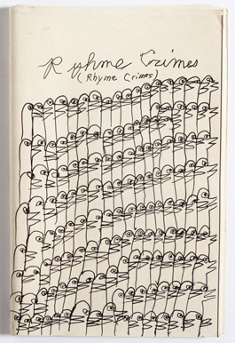 Ryhme Crimes
(Rhyme Crimes)